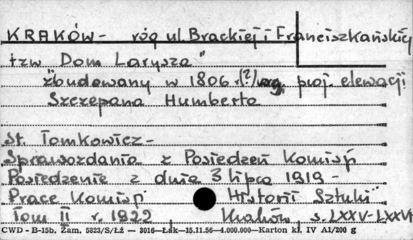 KRAKÓW - róg ul. Brackiej i Franciszkańskiej
tzw Dom Larysza"
zbudowany w 1806 r(?) wg. proj. elewacji
Szczepana Humberta
St. Tomkowicz -
Sprawozdania z Posiedzeń Komisji
Posiedzenie z dnia 3 lipca 1919 -
Prace Komisji Historii Sztuki
Tom II r. 1922 Kraków s. LXXV-LXXVI
CWD - B-15b. Zam. 5823/S/ŁŻ - 3016-Łdk-15.11.56-4.000.000-Karton kl. IV A1/200 g